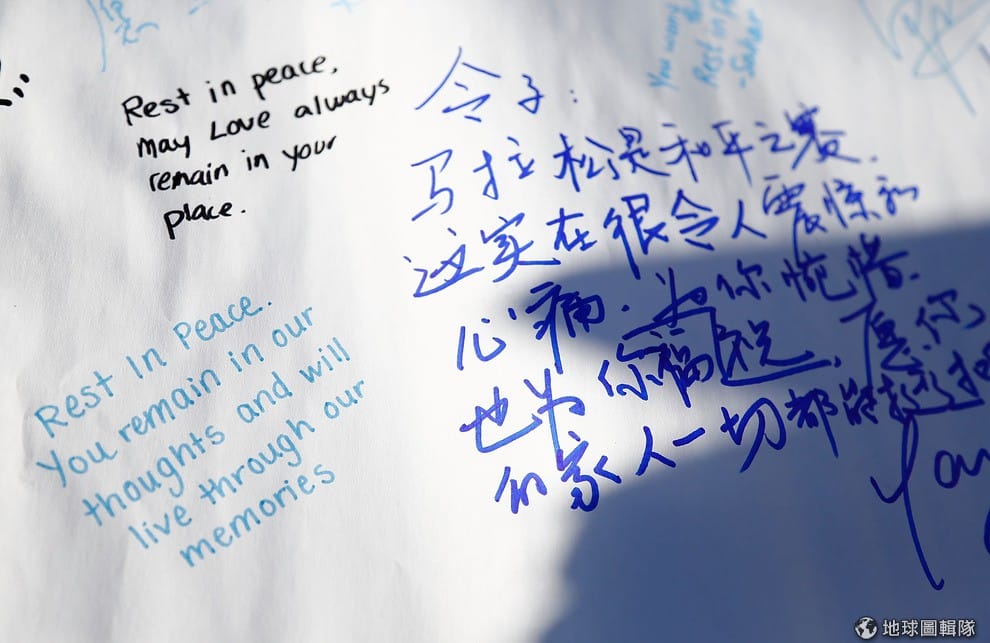 Rest in peace,
may Love always
remain in your
place.
Rest In Peace.
You remain in our
thoughts and will
live through our
memories
令子:
马拉松是和平之赛.
这实在很令人震惊和
心痛.为你惋惜.
也为你福祝,愿你
的家人一切都能
You
Rest in
地球圖輯隊